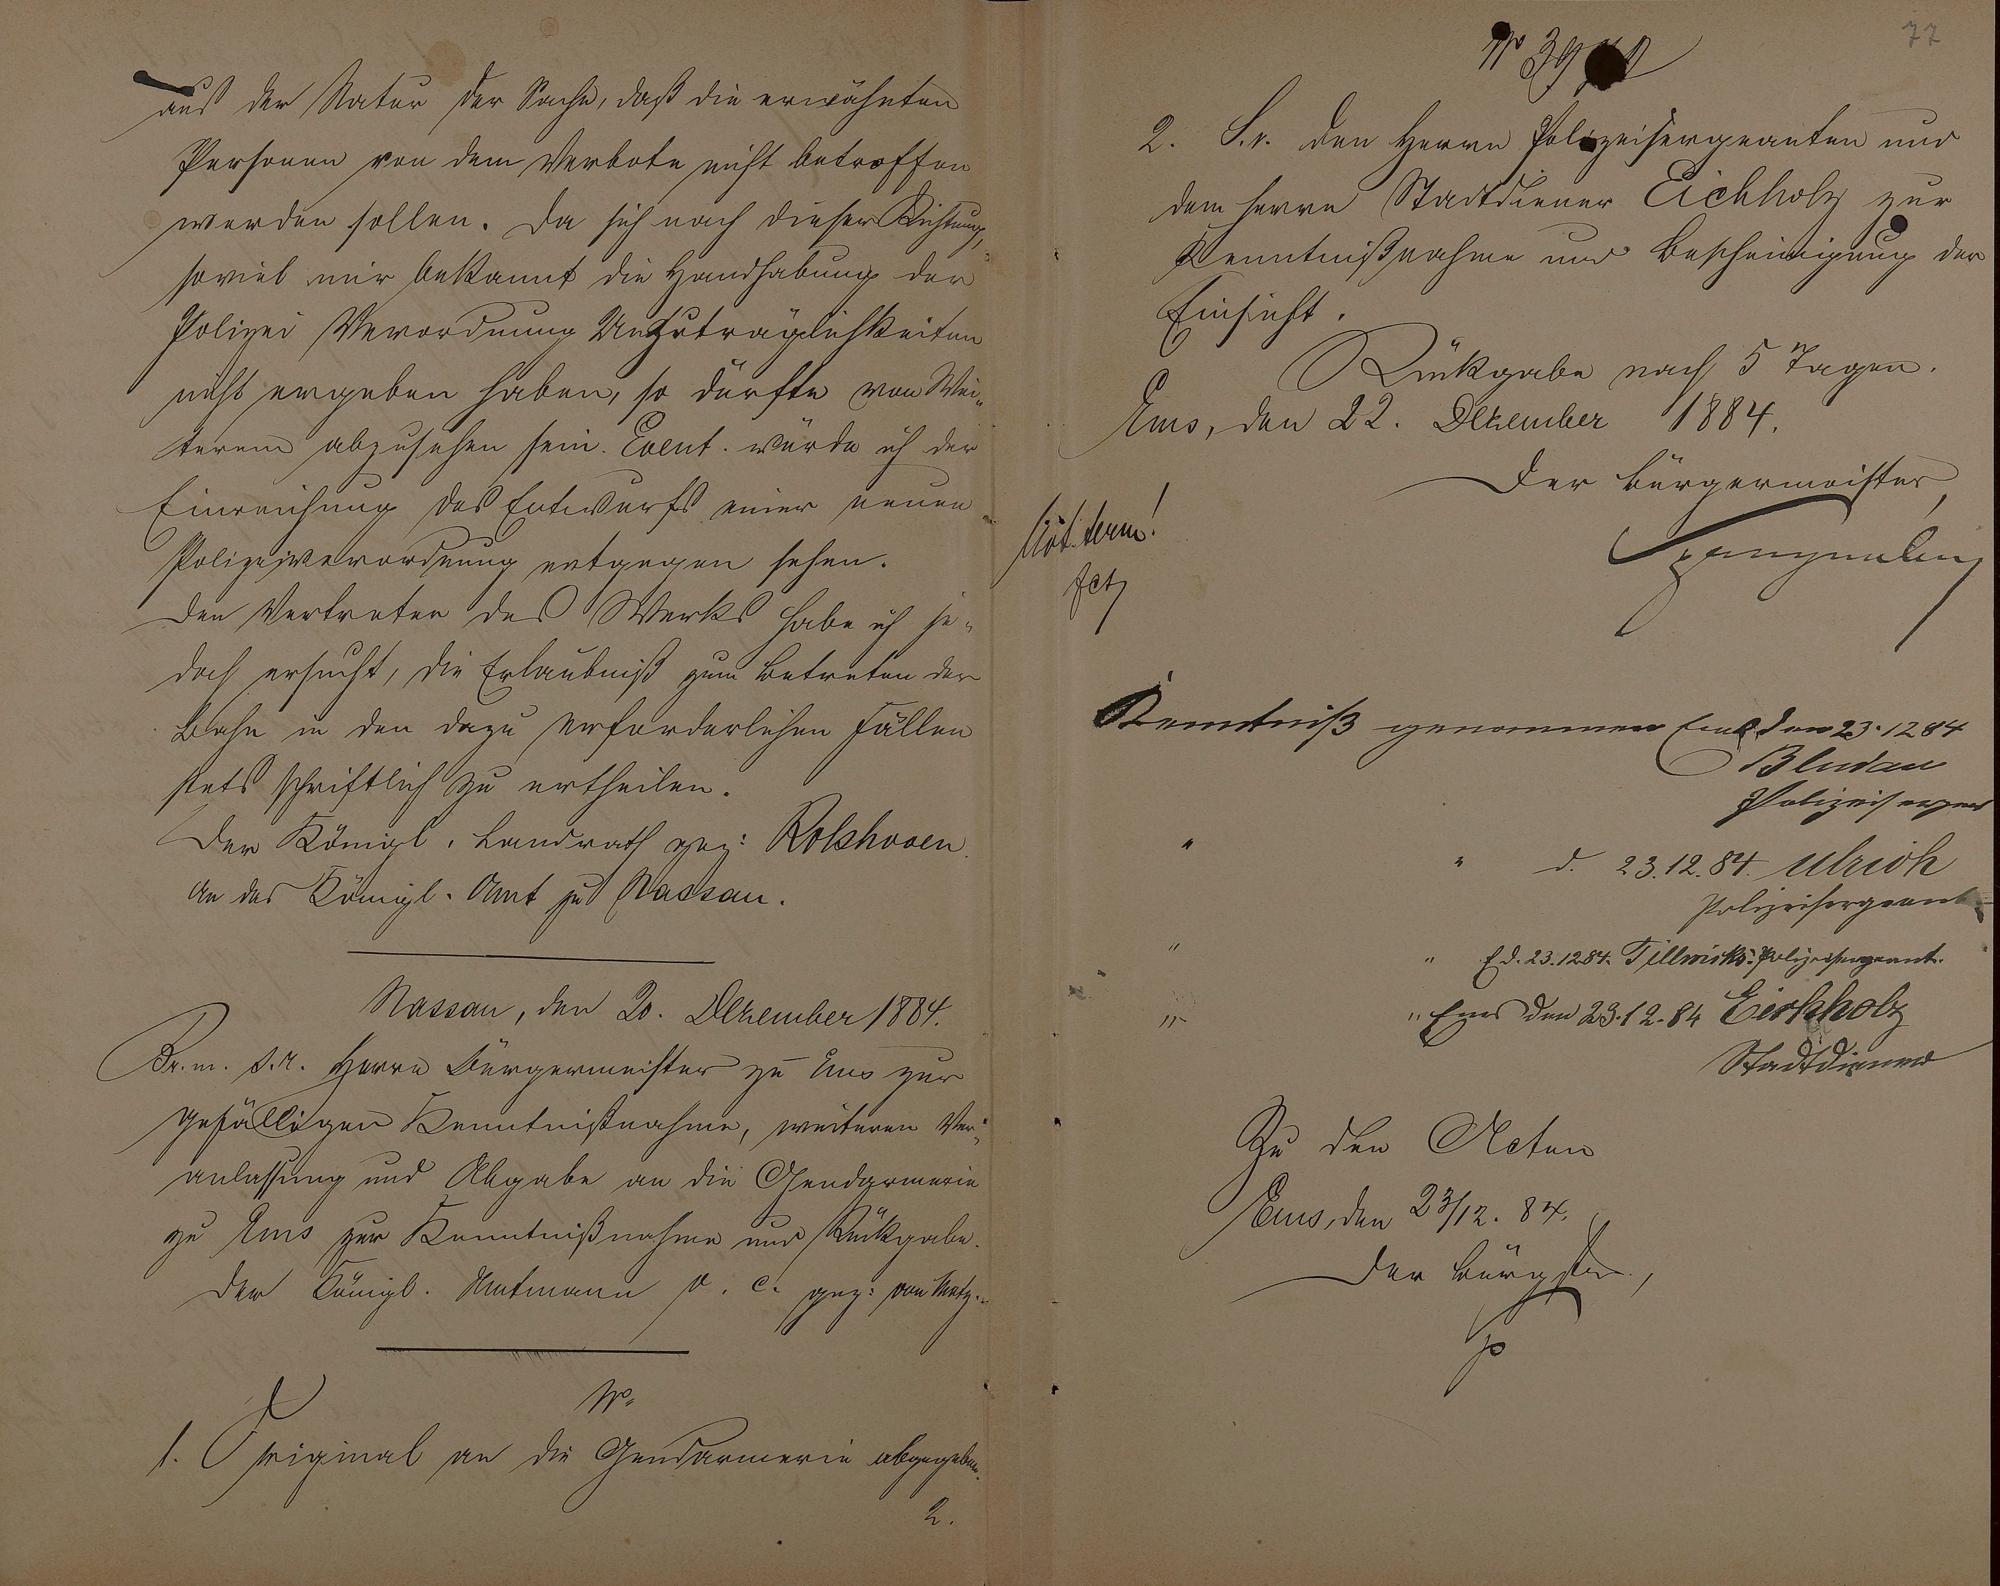 aus der Natur der Sache, daß die erwähnten
Personen von dem Verbote nicht betroffen
werden sollen. Da sich nach dieser Richtung,
soviel mir bekannt die Handhabung der
Polizei Verordnung Unzuträglichkeiten
nicht ergeben haben, so dürfte von Wei-
terem abzusehen sein. Event. würde ich der
Einreichung des Entwurfs einer neuen
Polizeiverordnung entgegen sehen.
Den Vertreter des Werks habe ich je-
doch ersucht, die Erlaubniß zum Betreten der
Bahn in den dazu erforderlichen Fällen
stets schriftlich zu ertheilen.
Der Königl. Landrath gez: Rolshoven
An das Königl. Amt zu Nassau.
Nassau, den 20. Dezember 1884.
Br. m. s. R. Herrn Bürgermeister zu Ems zur
gefälligen Kenntnißnahme, weiteren Ver-
anlassung und Abgabe an die Gendarmerie
zu Ems zur Kenntnißnahme und Rückgabe.
Der Königl. Amtmann v. c. gez:
1. Original an die Gendarmerie abgegeben.
2.
77
No
2. S. r. den Herrn Polizeisergeanten und
dem Herrn Stadtdiener Eichholz zur
Kenntnißnahme und Bescheinigung der
Einsicht.
Rückgabe nach 5 Tagen.
Ems, den 22. Dezember 1884.
Der Bürgermeister,
Spangenberg
Kenntniß genommen Ems den 23.12 84
Bludau
Polizeisergeant
" " d. 23.12.84. Ulrich
Polizeisergeant
" " E. d. 23.12.84. Polizeisergeant.
" " Ems den 23.12.84 Eichholz
Stadtdiener
Zu den Acten
Ems, den 23/12. 84.
Der Bürgstr.,